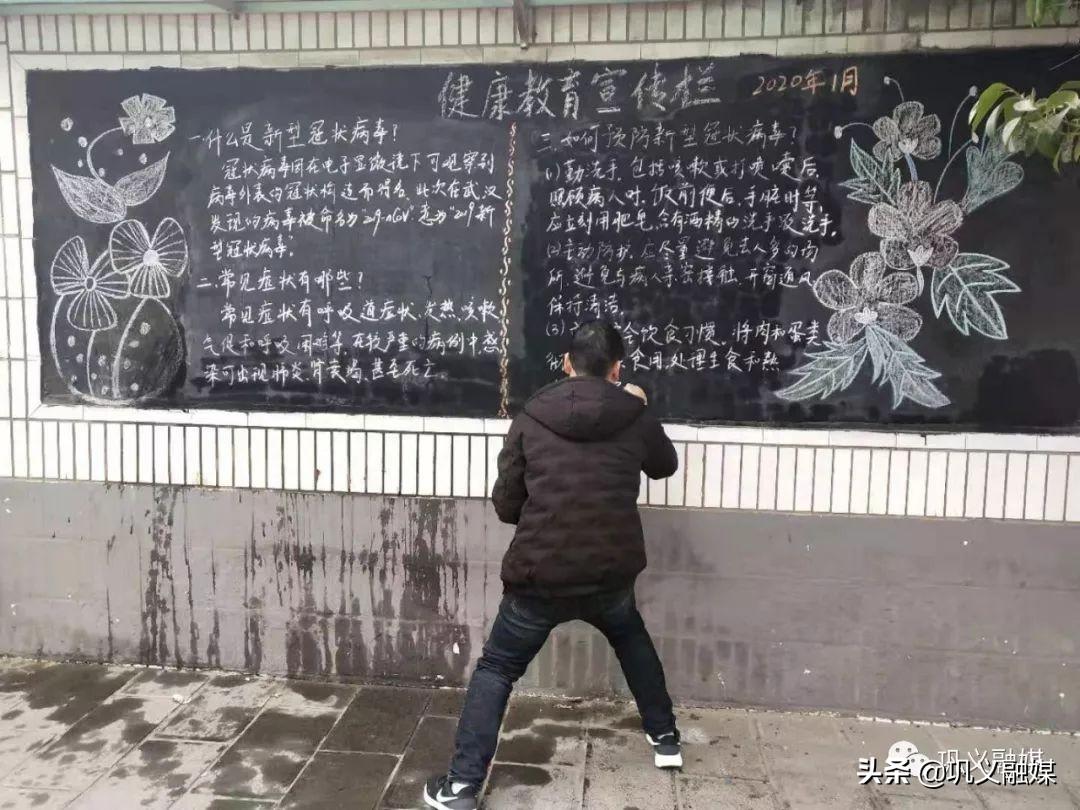 健康教育宣传栏
2020年1月
一什么是新型冠状病毒?
冠状病毒因在电子显微镜下可观察到
病毒外表的冠状构造而得名,此次在武汉
发现的病毒被命名为
型冠状病毒。
二.常见症状有哪些?
常见症状有呼吸道症状、发热、咳嗽
气促和呼吸困难等,在较严重的病例中,感
染可出现肺炎、肾衰竭,甚至死亡。
三.如何预防新型冠状病毒?
(1)勤洗手,包括咳嗽或打喷嚏后
照顾病人时、饭前便后、手脏时等,
应立刻用肥皂,含有酒精的洗手液洗手。
(2)主动防护,应尽量避免去人多的场
所,避免与病人亲密接触,开窗通风
保持清洁。
(3) 全饮食习惯,将肉和蛋类
食用,处理生食和熟
头条@巩义融媒
巩义融媒